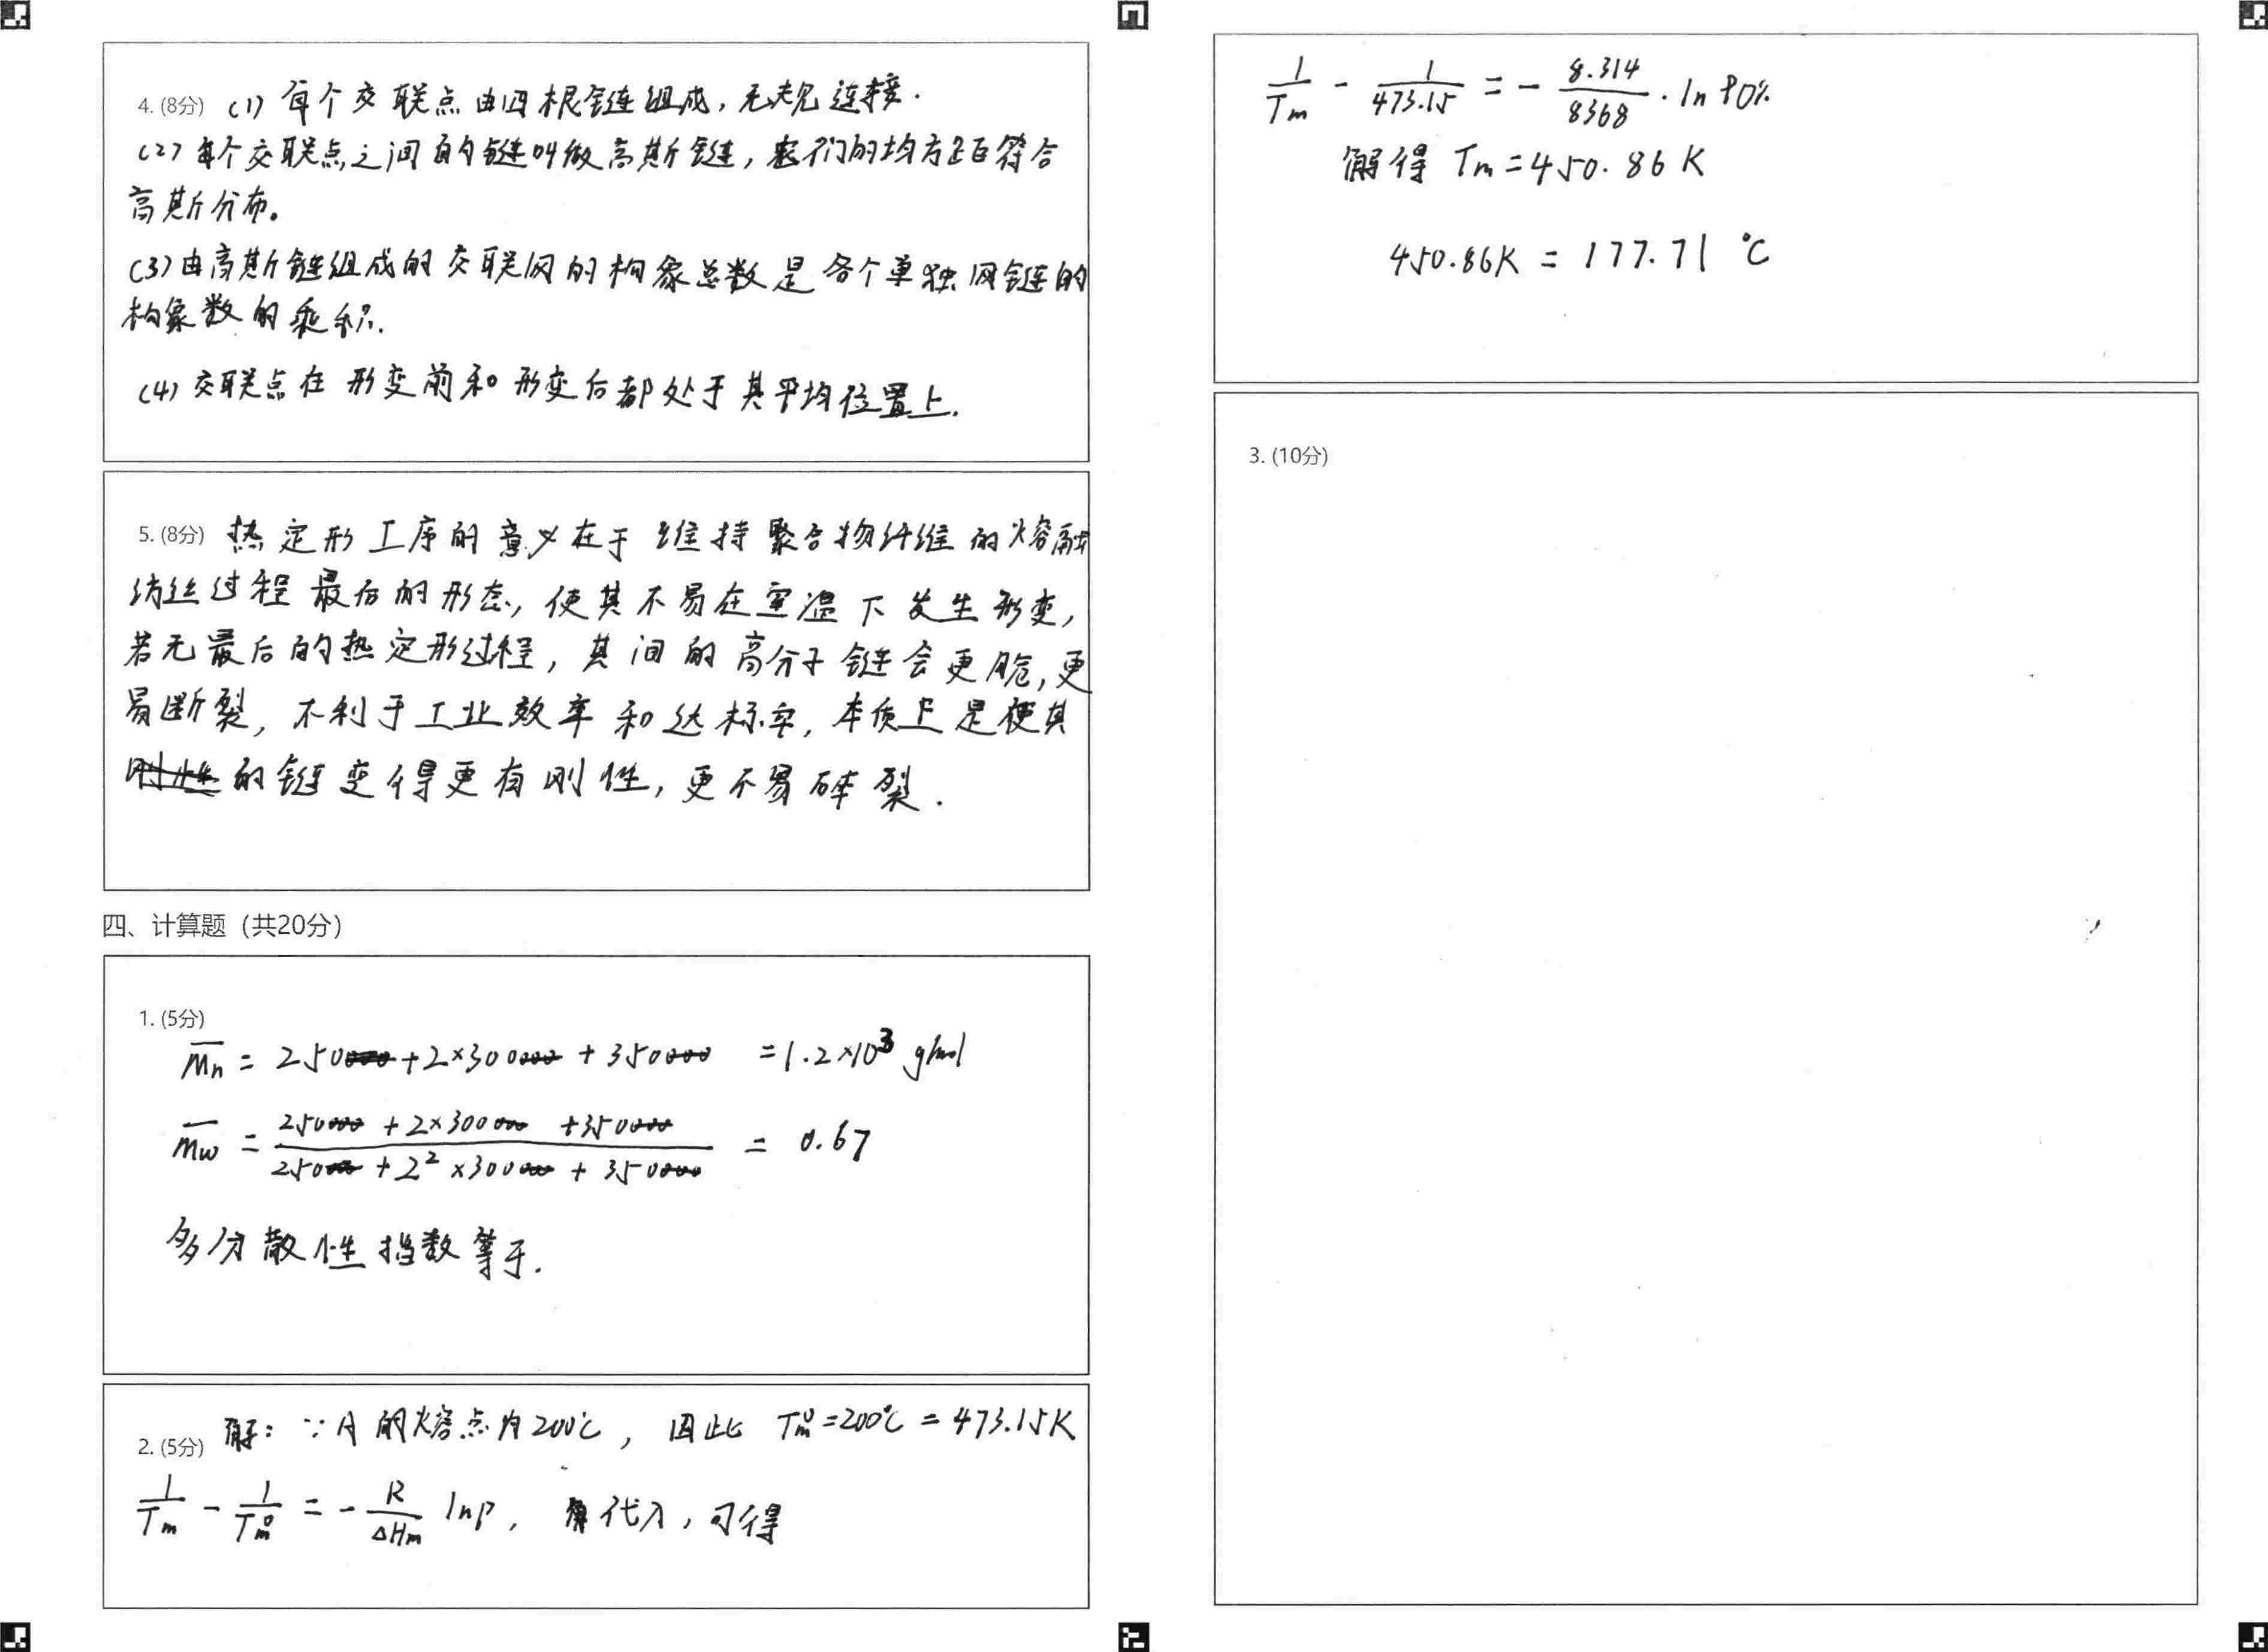 4. (8分) (1) 每个交联点由四根链组成,无规连接.
(2) 每个交联点之间的链叫做高斯链,它们的均方末端距符合
高斯分布。
(3) 由高斯链组成的交联网的构象总数是各个单独网链的
构象数的乘积.
(4) 交联点在形变前和形变后都处于其平均位置上.
5. (8分) 热定形工序的意义在于维持聚合物纤维的熔融
纺丝过程最后的形态,使其不易在室温下发生形变,
若无最后的热定形过程,其间的高分子链会更脆,更
易断裂,不利于工业效率和达标率,本质上是使其
的链变得更有刚性,更不易碎裂.
四、计算题(共20分)
1. (5分)
Mn = 250 + 2×300 + 350 = 1.2×10³ g/mol
Mw = (250 + 2×300 + 350) / (250 + 2²×300 + 350) = 0.67
多分散性指数等于.
2. (5分) 解:∵A的熔点为200℃,因此 Tm⁰=200℃ = 473.15K
1/Tm - 1/Tm⁰ = - R/ΔHm lnP, 代入,可得
1/Tm - 1/473.15 = - 8.314/8368 · ln 80%
解得 Tm = 450.86 K
450.86K = 177.71 ℃
3. (10分)